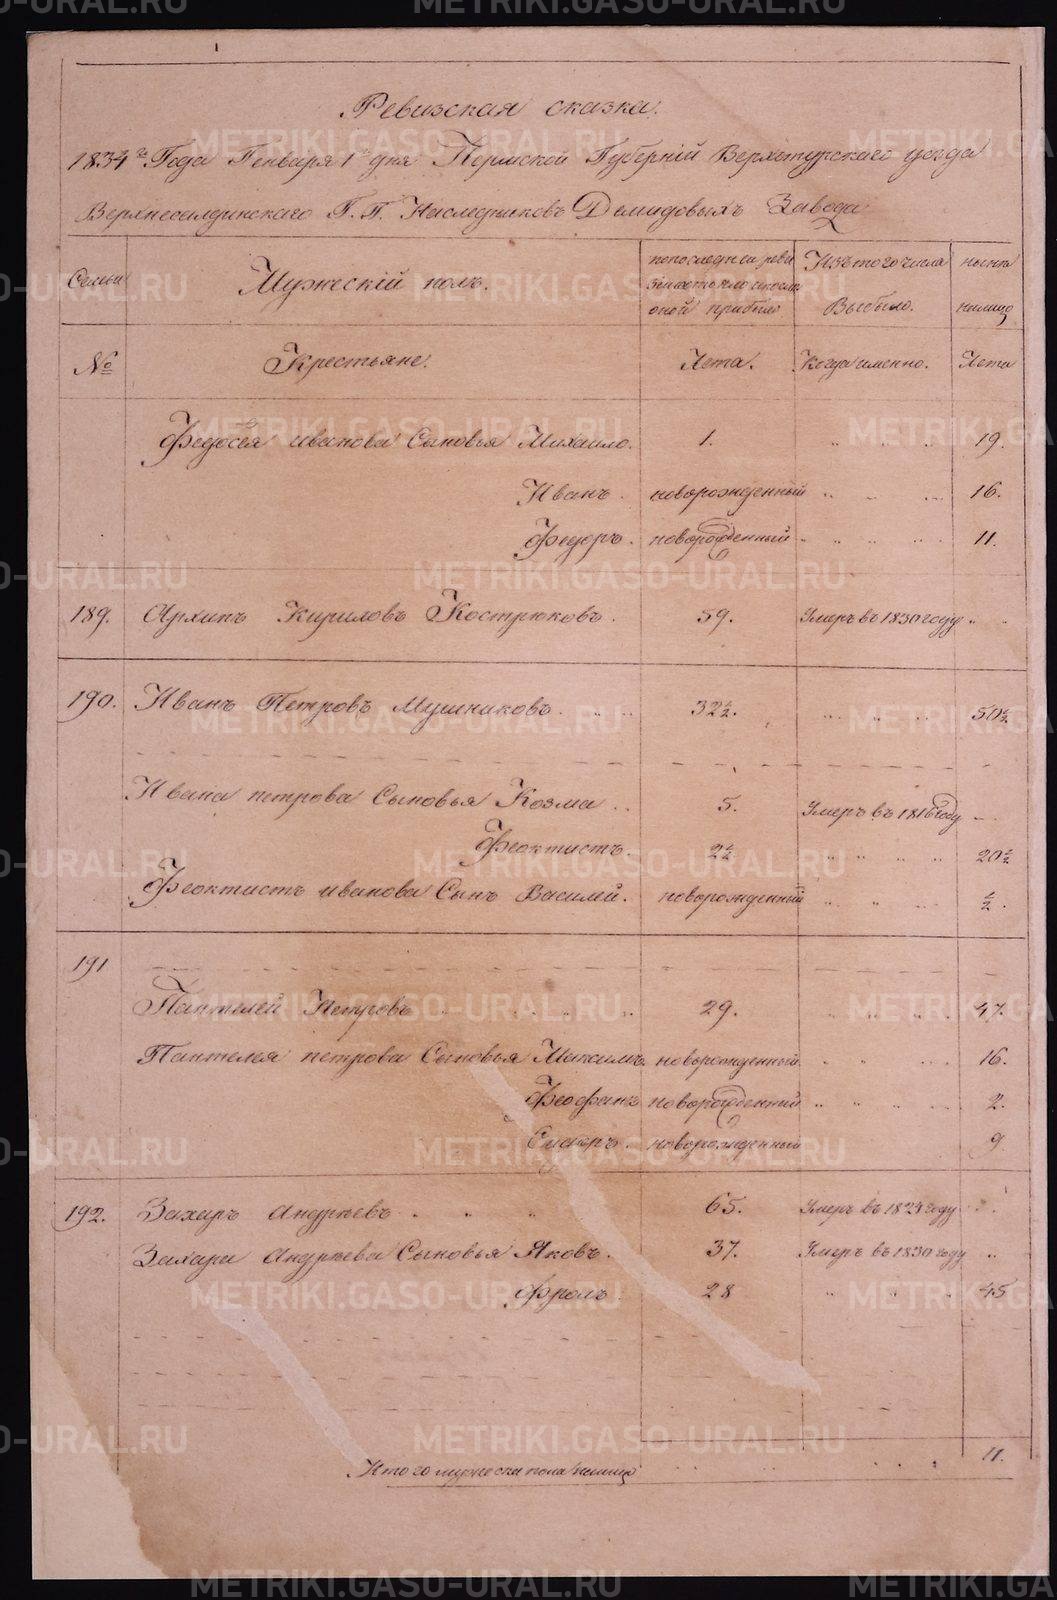 Ревизская сказка.
1834го Года Генваря 1го дня Пермской Губернiй Верхотурскаго уезда
Верхнесалдинскаго Г.Г. Наследниковъ Демидовыхъ Завода
Семьи Мужескiй полъ. попоследней реви Изъ того числа ныне
зiи состояло и после
оной прибыло Выбыло. налицо
№ Крестьяне. Лета. Когда именно. Лета
Федосея иванова Сыновья Михаило. 1. 19.
Иванъ. новорожденный 16.
Федоръ. новорожденный 11.
189. Архипъ Кириловъ Кострюковъ. 59. Умеръ въ 1830 году
190. Иванъ Петровъ Мушниковъ. 32½. 50½
Ивана петрова Сыновья Козма 5. Умеръ въ 1816 году
Феоктистъ. 2½ 20½
Феоктистъ иванова Сынъ Василей. новорожденный ½.
191
Пантелей Петровъ 29. 47.
Пантелея петрова Сыновья Максимъ новорожденный. 16.
Феофанъ новорожденный 2.
новорожденный 9
192. Захаръ Андреевъ 65. Умеръ въ 1824 году
Захара Андреева Сыновья Яковъ. 37. Умеръ въ 1830 году
Фролъ. 28 45
Итого мужеска пола налицо 11.
METRIKI.GASO-URAL.RU